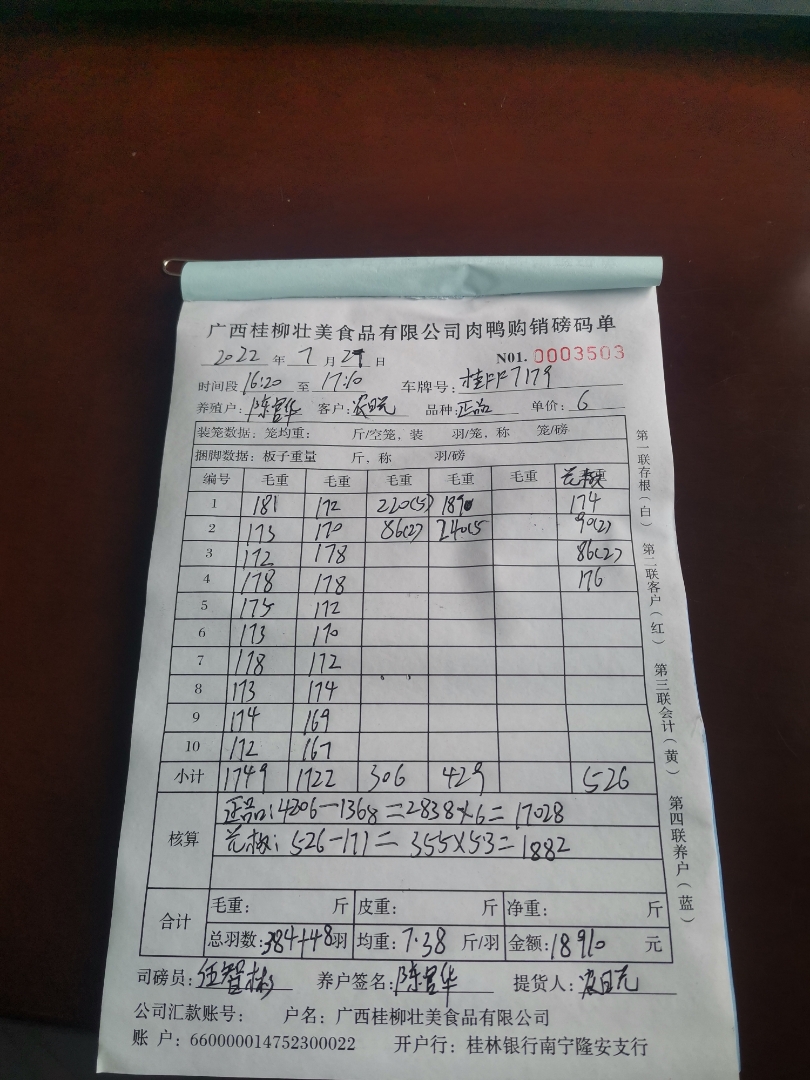 广西桂柳壮美食品有限公司肉鸭购销磅码单
2022 年 7 月 29 日 N01. 0003503
时间段 16:20 至 17:10 车牌号: 桂FF7179
养殖户: 陈 华 客户: 农日 品种: 正品 单价: 6
装笼数据: 笼均重: 斤/空笼, 装 羽/笼, 称 笼/磅
捆脚数据: 板子重量 斤, 称 羽/磅
编号 毛重 毛重 毛重 毛重 毛重 花板
1 181 172 220(5) 189 174
2 173 170 86(2) 240(5 90(2)
3 172 178 86(2)
4 178 178 176
5 175 172
6 173 170
7 178 172
8 173 174
9 174 169
10 172 167
小计 1749 1722 306 429 526
核算
正品: 4206-1368=2838×6=17028
花板: 526-171=355×53=1882
合计
毛重: 斤 皮重: 斤 净重: 斤
总羽数: 384+48 羽 均重: 7.38 斤/羽 金额: 18910 元
司磅员: 伍智彬 养户签名: 陈 华 提货人: 农日
公司汇款账号: 户名: 广西桂柳壮美食品有限公司
账 户: 660000014752300022 开户行: 桂林银行南宁隆安支行
第一联存根(白) 第二联客户(红) 第三联会计(黄) 第四联养户(蓝)